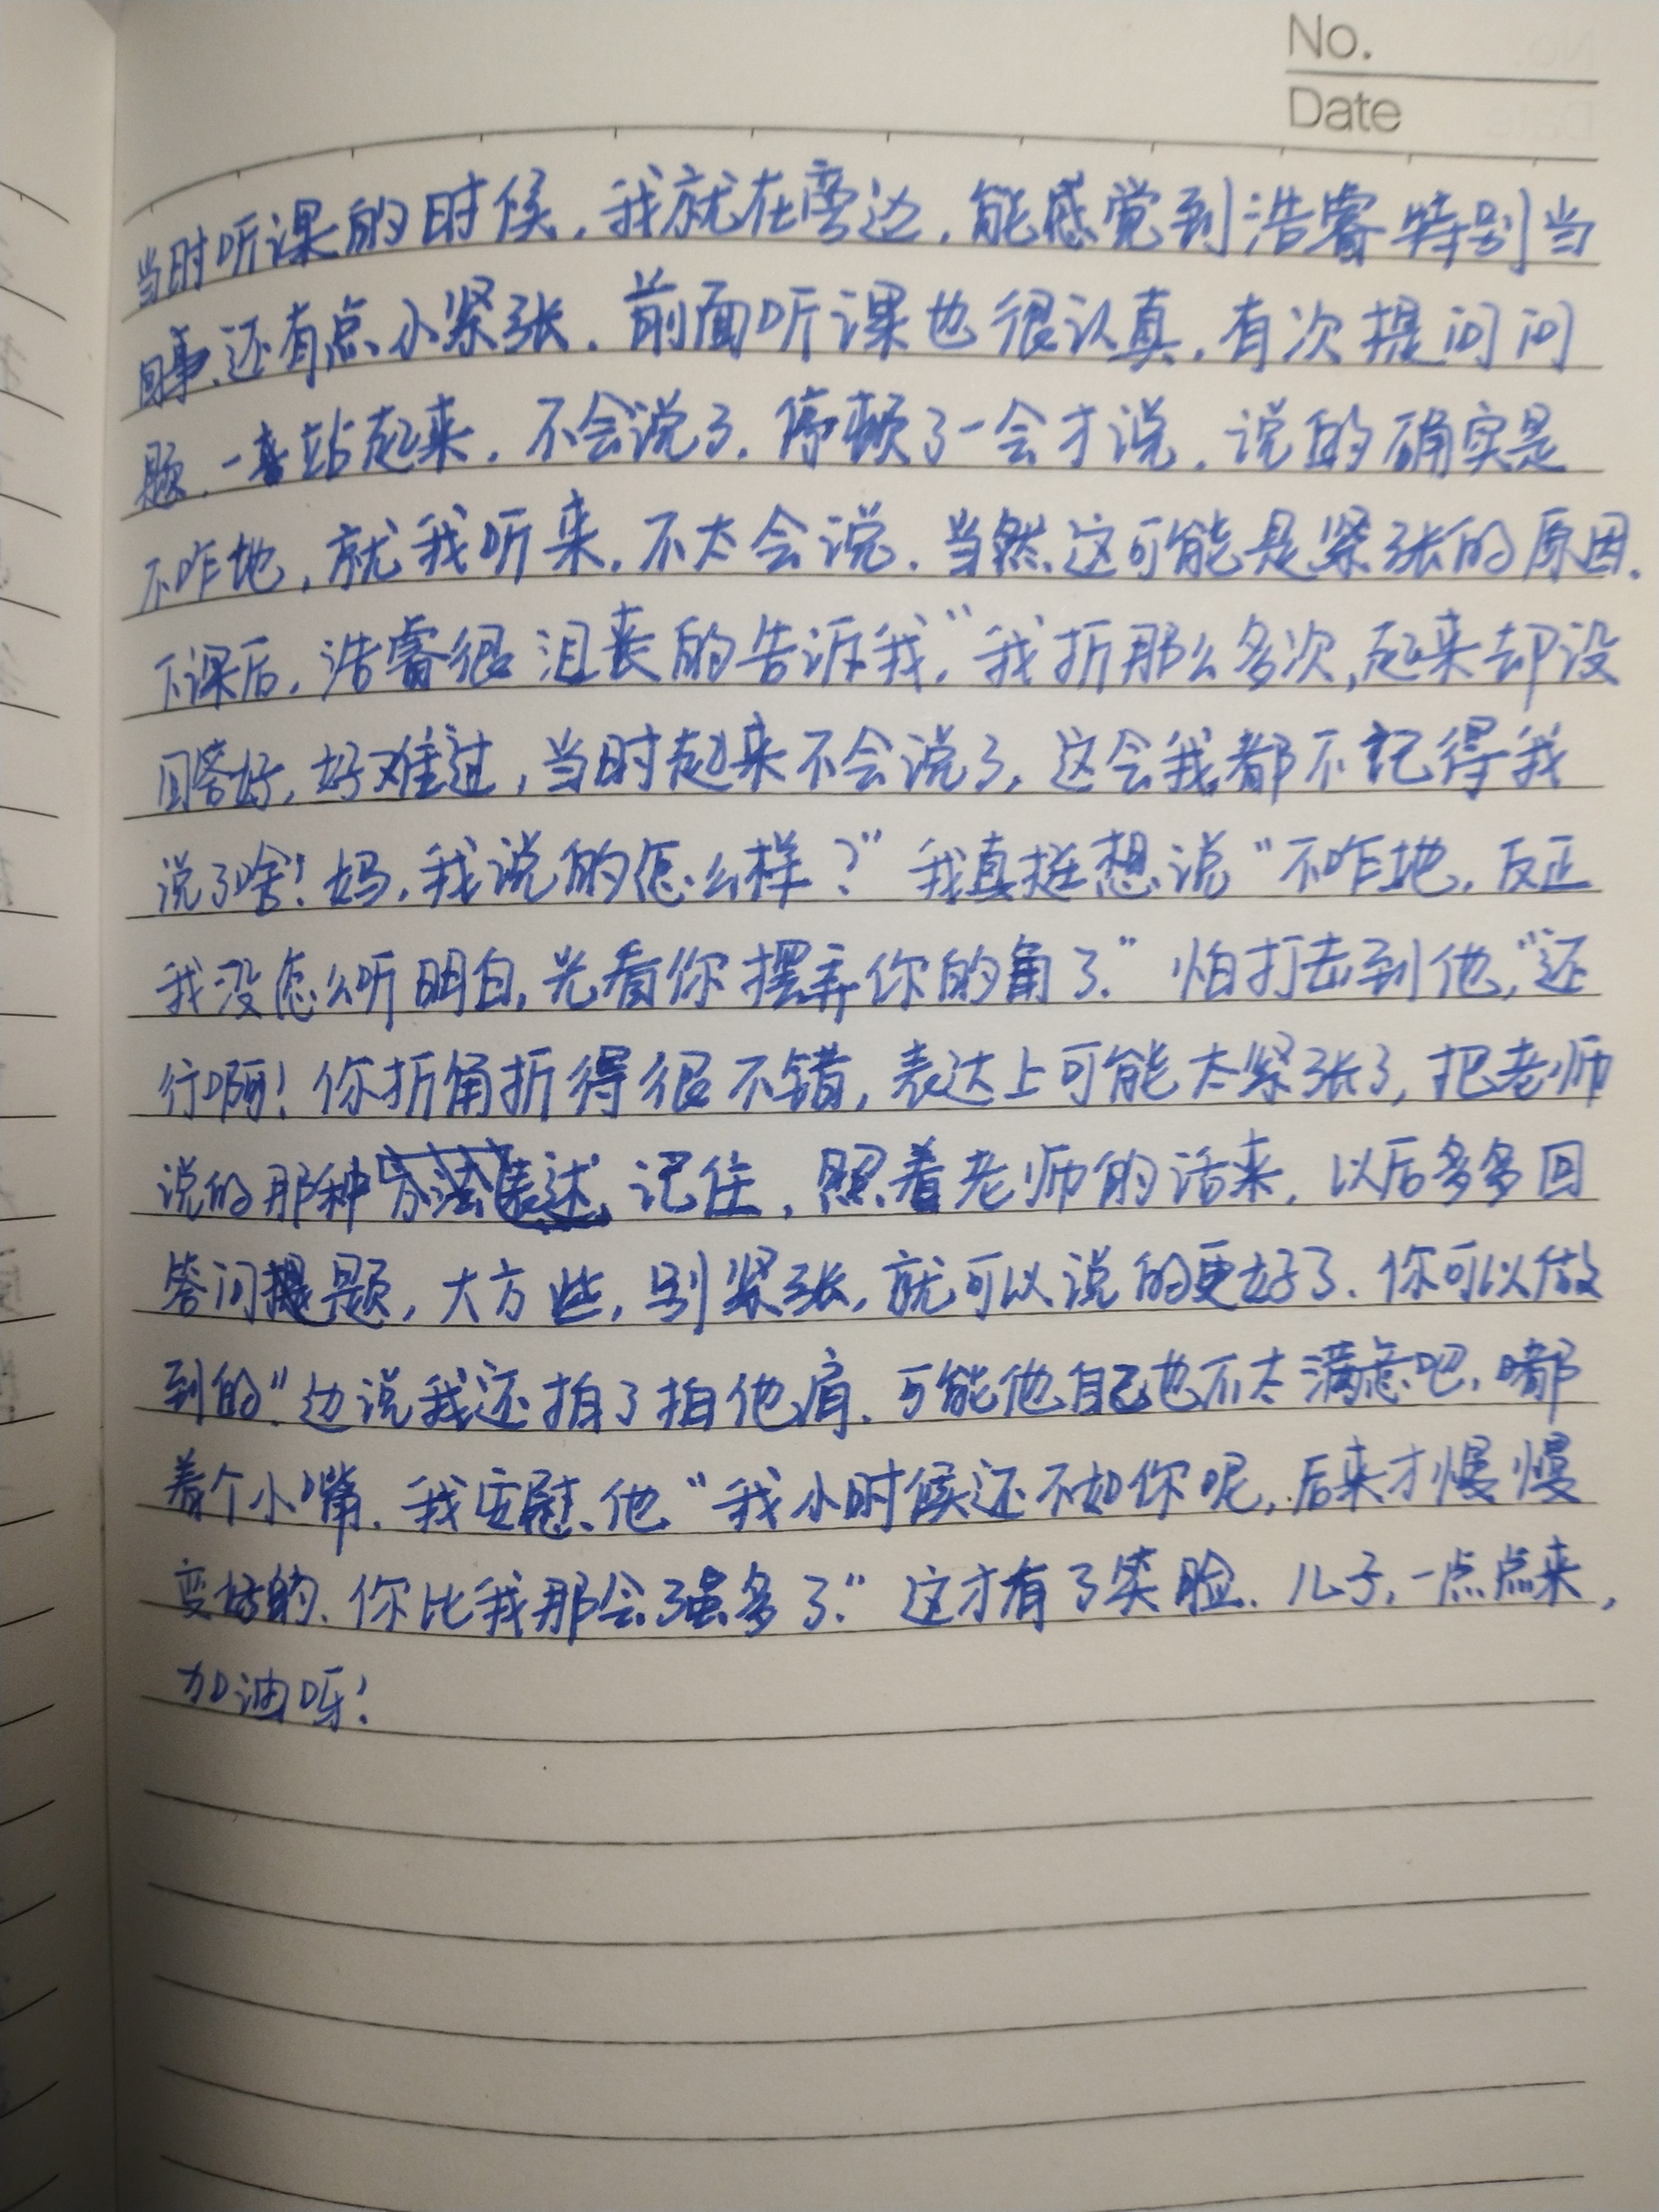 No.
Date
当时听课的时候，我就在旁边，能感觉到浩睿特别当
回事，还有点小紧张．前面听课也很认真，有次提问问
题，一站起来，不会说了．停顿了一会才说，说的确实是
不咋地，就我听来，不太会说．当然这可能是紧张的原因．
下课后，浩睿很沮丧的告诉我，“我折那么多次，起来却没
回答好，好难过，当时起来不会说了，这会我都不記得我
说了啥！妈，我说的怎么样？”我真挺想说“不咋地，反正
我没怎么听明白，光看你摆弄你的角了．”怕打击到他，“还
行啊！你折角折得很不错，表达上可能太紧张了，把老师
说的那种表述，记住，照着老师的话来，以后多多回
答问题，大方些，别紧张，就可以说的更好了．你可以做
到的．”边说我还拍了拍他肩．可能他自己也不太满意吧，嘟
着个小嘴．我安慰他“我小时候还不如你呢，后来才慢慢
变好的．你比我那会强多了．”这才有了笑脸．儿子，一点点来，
加油呀！